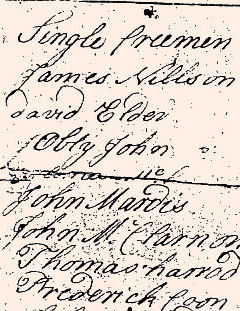 Single freemen
James Nillson
david Elder
Obty John
John Mardis
John Mc Clarnon
Thomas harrod
Frederick Coon